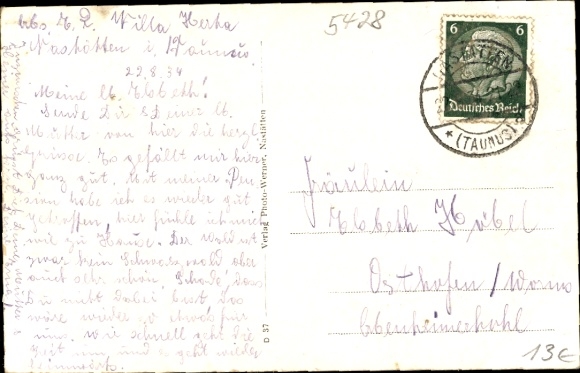 Villa Herta
Nastätten i. Taunus
22.8.34
Meine lb. Elsbeth!
Sende Dir & Deiner lb.
Mutter von hier die herzl.
Grüsse. Es gefällt mir hier
ganz gut. Mit meiner Pen-
sion habe ich es wieder gut
getroffen, hier fühle ich mich
wie zu Hause. Der Wald ist
zwar kein Schwarzwald aber
auch sehr schön. Schade, dass
Du nicht dabei bist. Das
wäre wieder so etwas für
uns. Wie schnell geht die
Zeit um und es geht wieder
heimwärts.
Verlag Photo-Werner, Nastätten
D 37
5428
6 6
Deutsches Reich
NASTÄTTEN
* (TAUNUS)
Fräulein
Elsbeth Höbel
Osthofen / Worms
13€